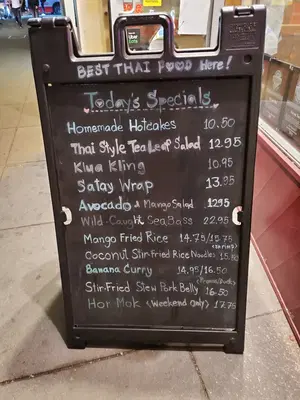 Uber
BEST THAI FOOD Here!
Today's Specials
Homemade Hotcakes 10.50
Thai Style Tea Leaf Salad 12.95
Klua Kling 10.95
Satay Wrap 13.95
Avocado & Mango Salad 12.95
Wild-Caught Sea Bass 22.95
Mango Fried Rice 14.75/15.75
(Shrimp)
Coconut Stir-Fried Rice Noodles 15.50
Banana Curry 14.95/16.50
Stir-Fried Stew Pork Belly 16.50
Hor Mok (Weekend Only) 17.75